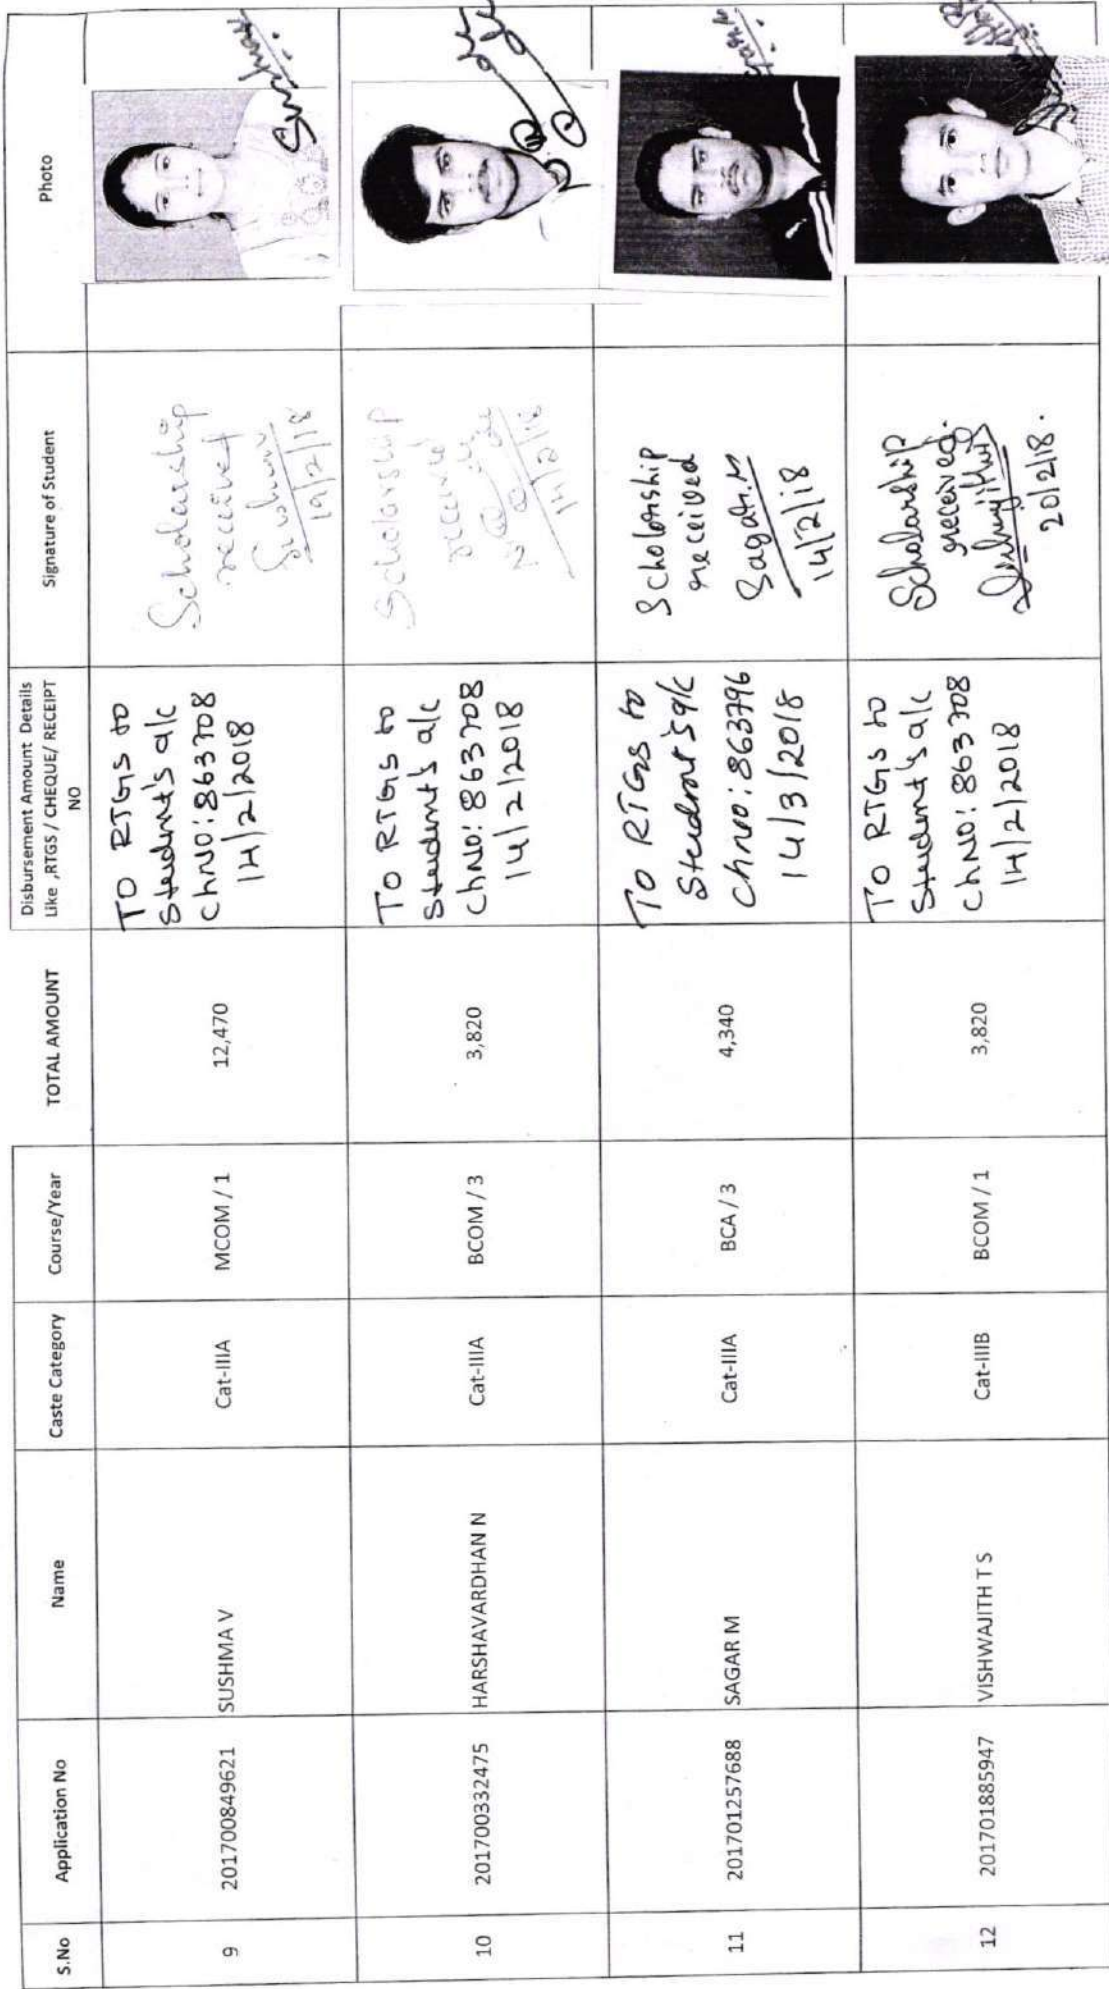 S.No
Application No
Name
Caste Category
Course/Year
TOTAL AMOUNT
Disbursement Amount Details
Like ,RTGS / CHEQUE/ RECEIPT
NO
Signature of Student
Photo
9
201700849621
SUSHMA V
Cat-IIIA
MCOM / 1
12,470
TO RTGS to
Student's a/c
ChNO: 863708
14/2/2018
Scholarship
received
19/2/18
10
201700332475
HARSHAVARDHAN N
Cat-IIIA
BCOM / 3
3,820
TO RTGS to
Student's a/c
ChNO: 863708
14/2/2018
Scholarship
received
14/2/18
11
201701257688
SAGAR M
Cat-IIIA
BCA / 3
4,340
TO RTGS to
Student's a/c
ChNO: 863796
14/3/2018
Scholarship
received
Sagar.M
14/2/18
12
201701885947
VISHWAJITH T S
Cat-IIIB
BCOM / 1
3,820
TO RTGS to
Student's a/c
ChNO: 863708
14/2/2018
Scholarship
received.
20/2/18.